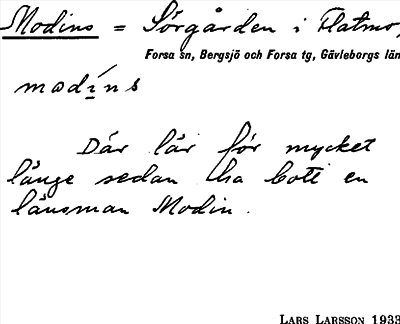 Modins = Sörgården i Flatmo,
Forsa sn, Bergsjö och Forsa tg, Gävleborgs län
modíns
Där lär för mycket
länge sedan ha bott en
länsman Modin.
LARS LARSSON 1933